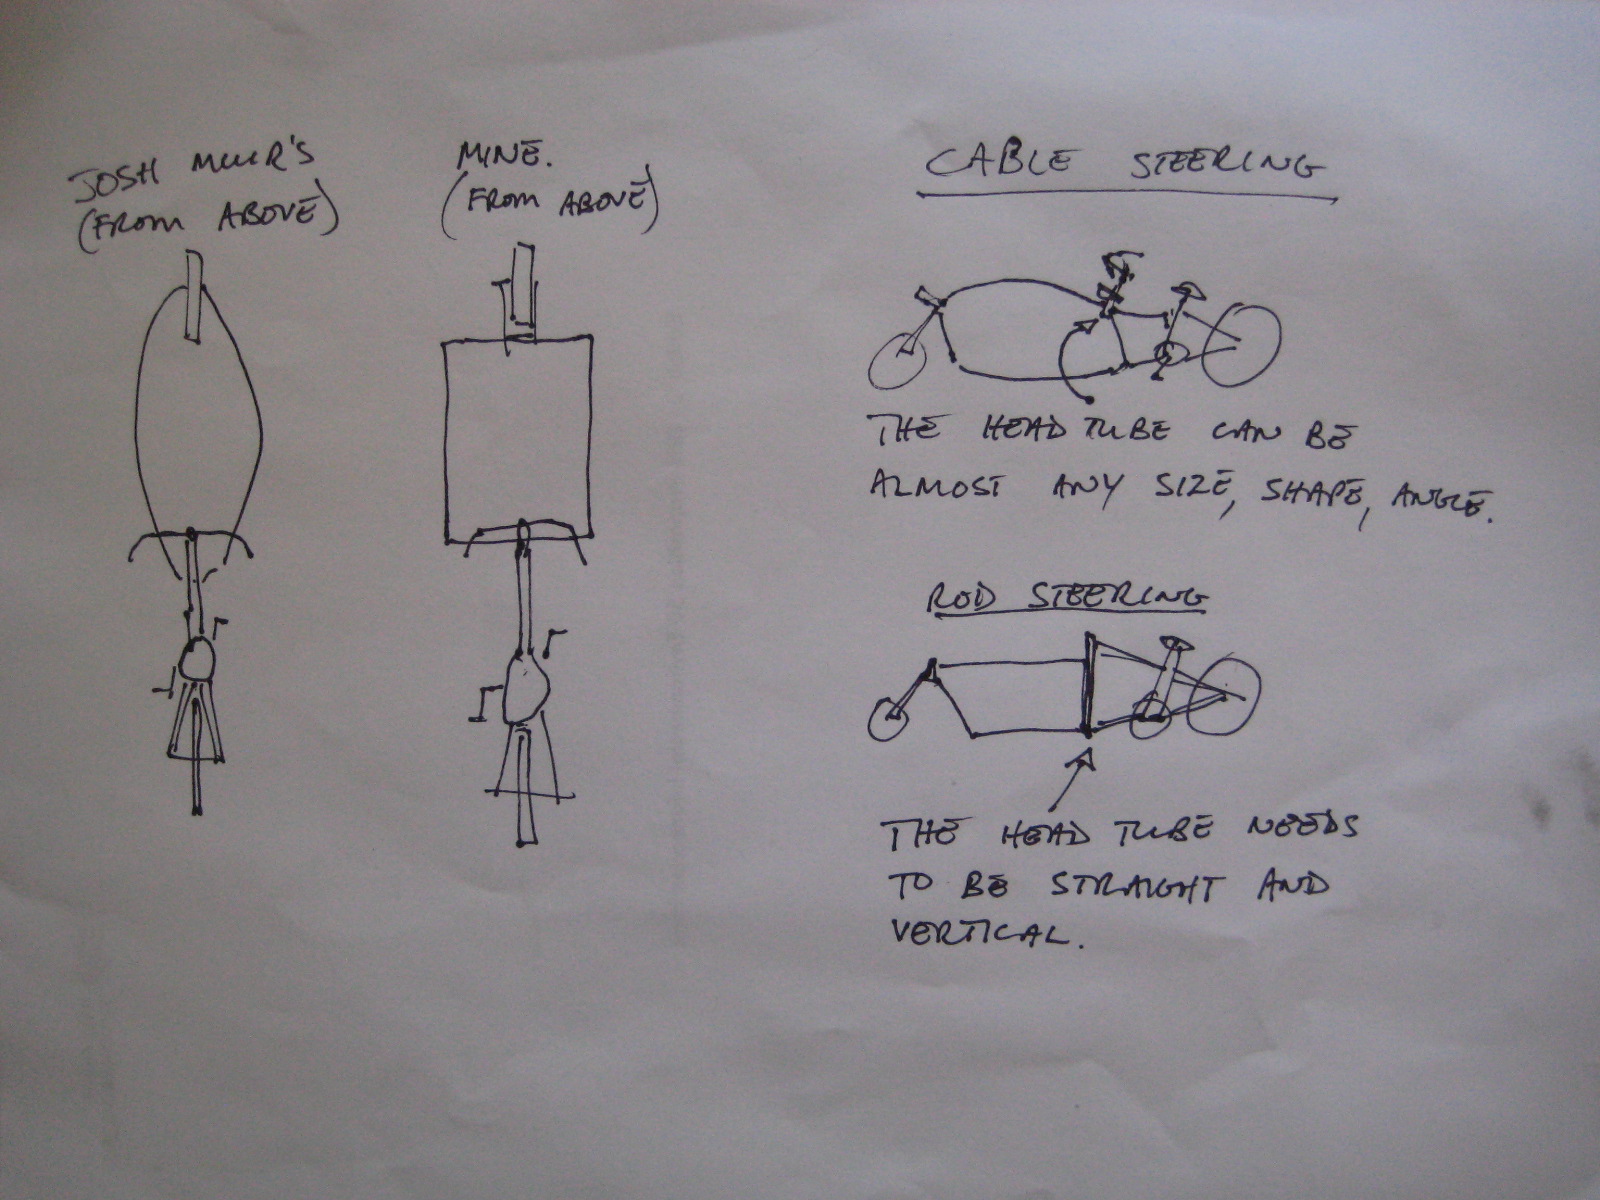 JOSH MUIR'S
(FROM ABOVE)
MINE.
(FROM ABOVE)
CABLE STEERING
THE HEAD TUBE CAN BE
ALMOST ANY SIZE, SHAPE, ANGLE.
ROD STEERING
THE HEAD TUBE NEEDS
TO BE STRAIGHT AND
VERTICAL.